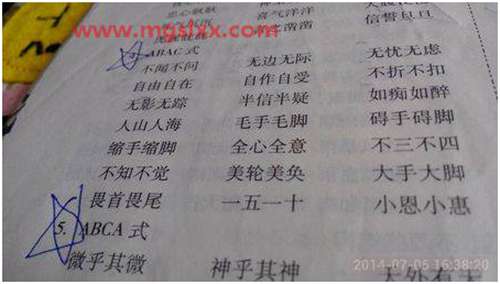 www.mgslxx.com
喜气洋洋
ABAC 式
不闻不问 无边无际 无忧无虑
自由自在 自作自受 不折不扣
无影无踪 半信半疑 如痴如醉
人山人海 毛手毛脚 碍手碍脚
缩手缩脚 全心全意 不三不四
不知不觉 美轮美奂 大手大脚
畏首畏尾 一五一十 小恩小惠
5. ABCA 式
微乎其微 神乎其神 天外有天
2014-07-05 16:38:20